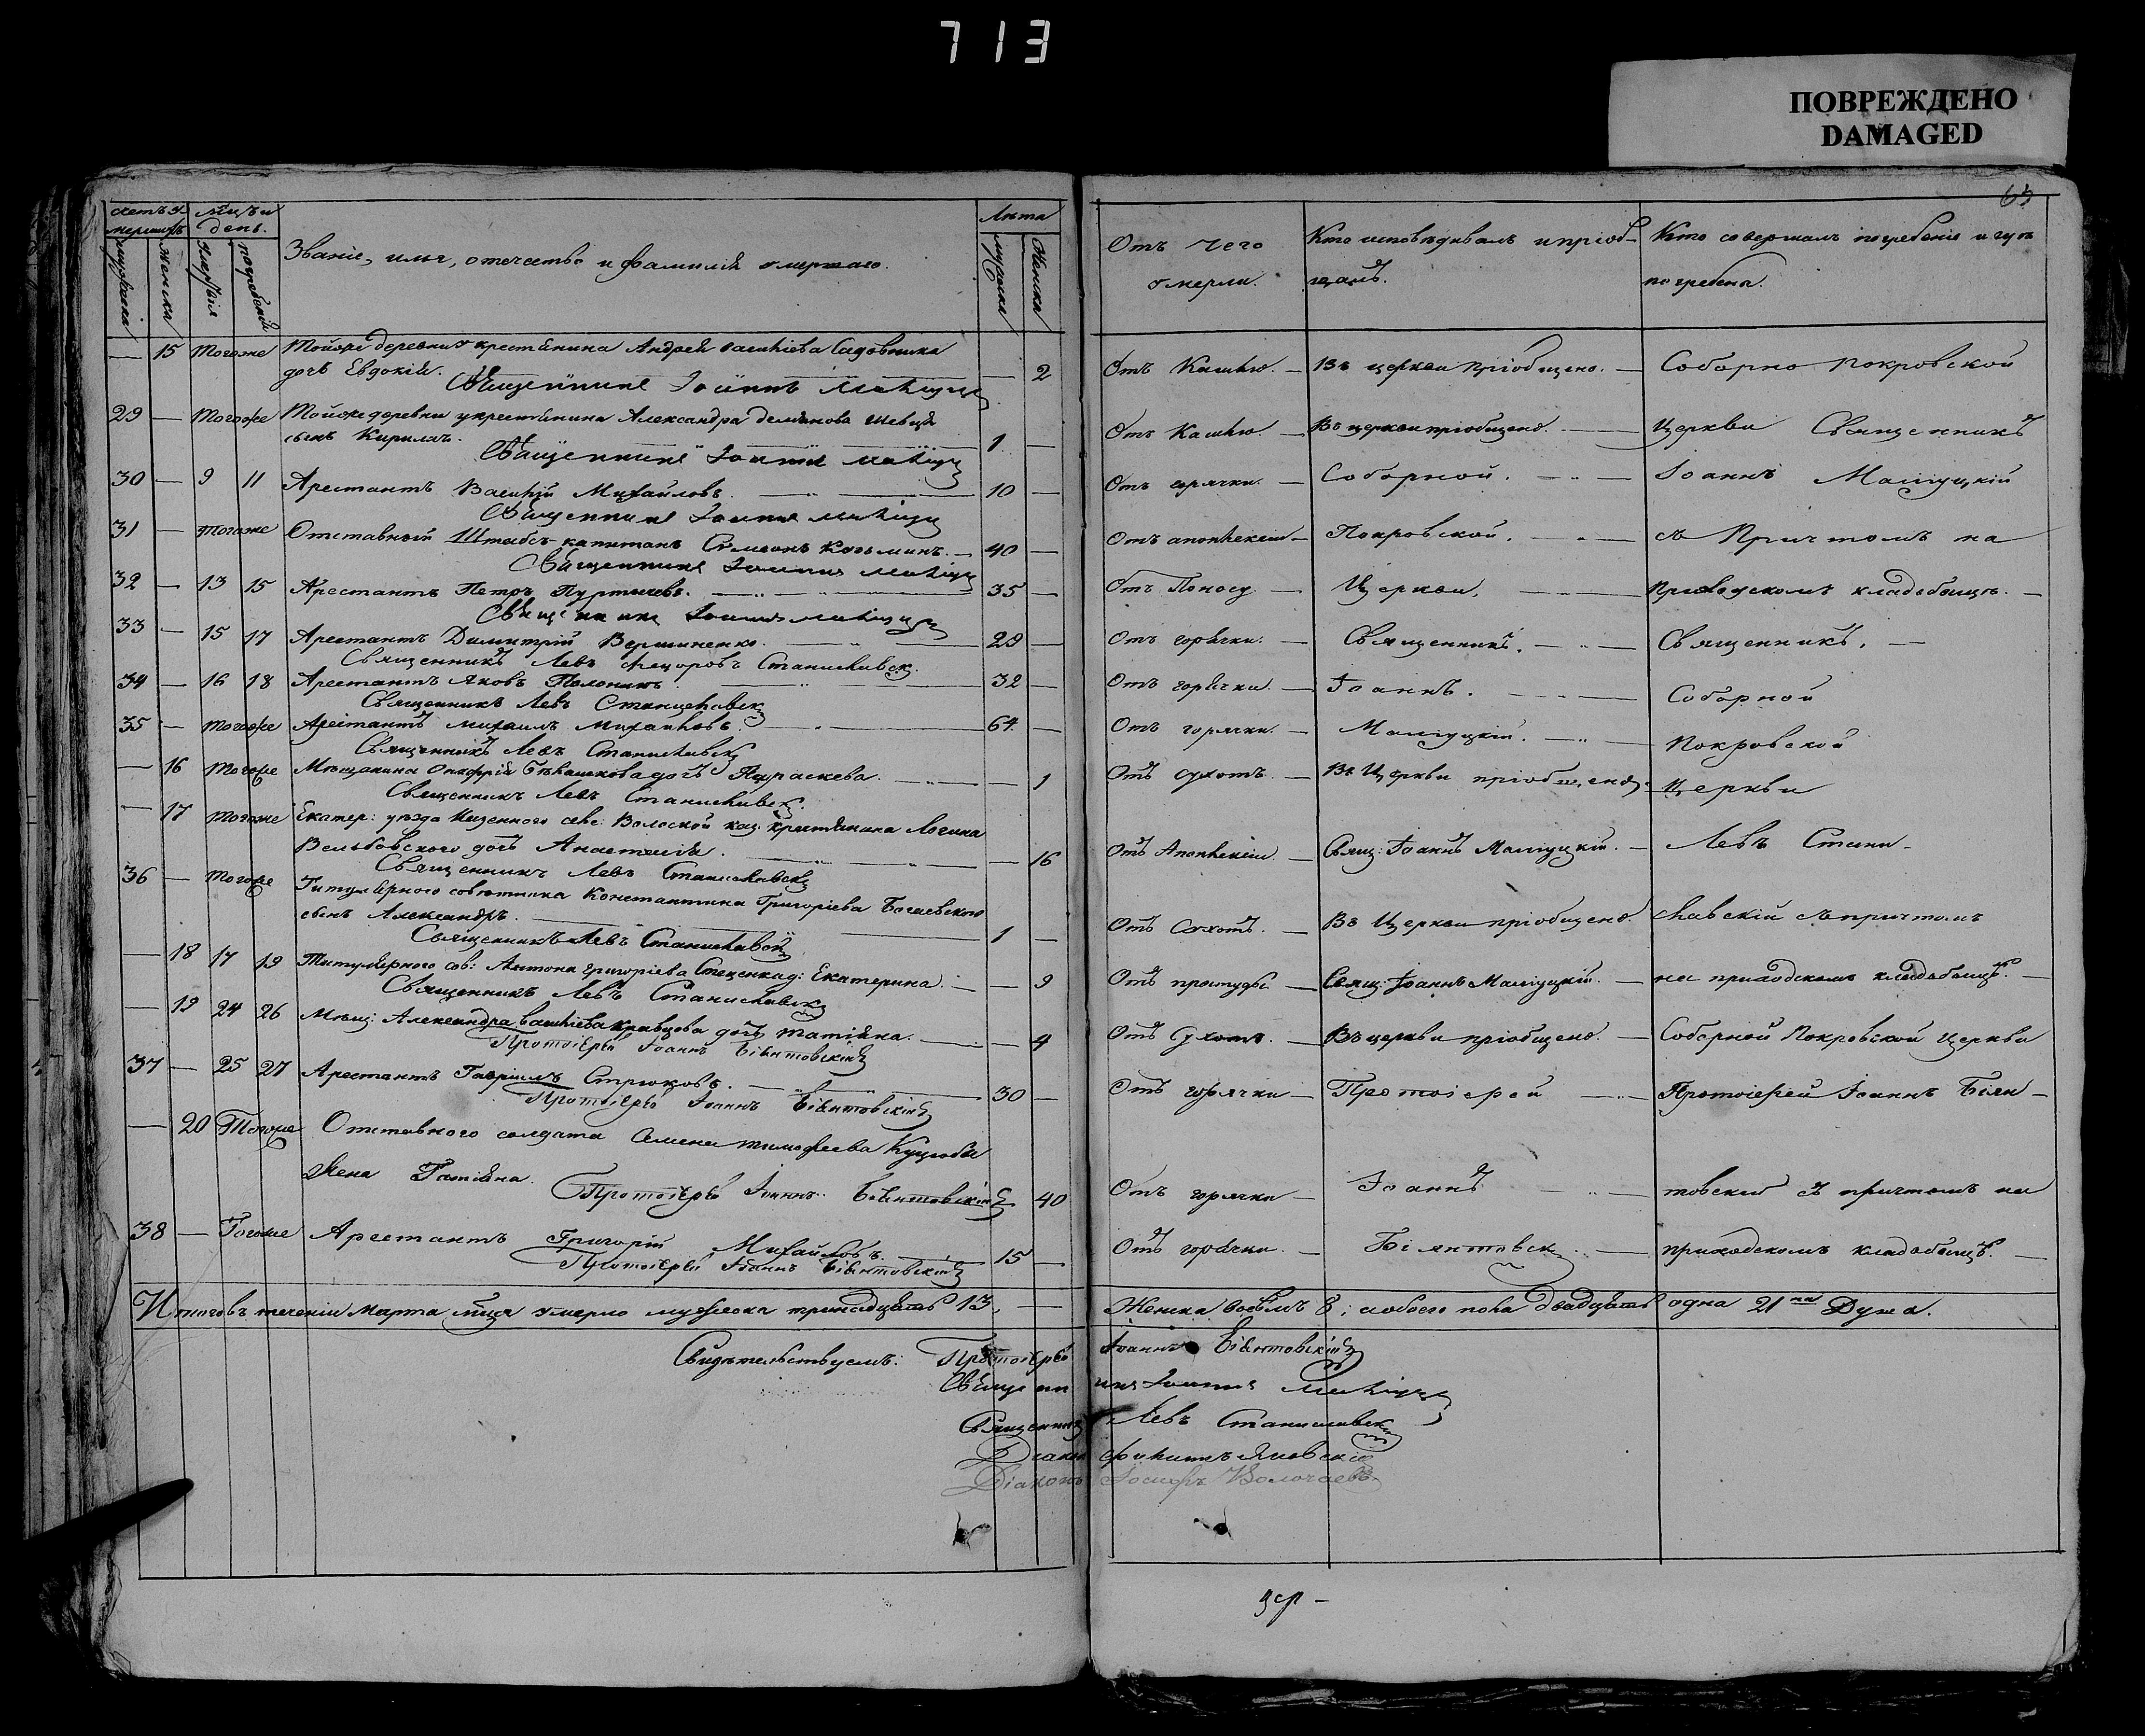 713
ПОВРЕЖДЕНО
DAMAGED
65
Званіе, имя, отечество и фамилія умершаго.
Лѣта
Отъ чего
умерли.
Кто исповѣдывалъ и пріоб-
щалъ.
Кто совершалъ погребеніе и гдѣ
погребены.
— 15 Тогоже Тойже деревни крестьянина Андрея Васильева Садовника
дочь Евдокія. — 2
Священникъ Іоаннъ
Отъ Кашлю. — Въ церкви пріобщено. — Соборно Покровской
29 — Тогоже Тойже деревни крестьянина Александра Демьянова Шевця
сынъ Кирилъ. 1 —
Священникъ Іоаннъ
Отъ Кашлю. — Въ церкви пріобщено. — Церкви Священникъ
30 — 9 11 Арестантъ Василій Михайловъ. 10 —
Священникъ Іоаннъ
Отъ горячки. — Соборной. — Іоаннъ
31 — Тогоже Отставный Штабсъ-капитанъ Симеонъ Козьминъ. — 40 —
Священникъ Іоаннъ
Отъ апоплексіи — Покровской. — съ Причтомъ на
32 — 13 15 Арестантъ Петръ 35 —
Священникъ Іоаннъ
Отъ Поносу — Церкви. — приходскомъ кладбищѣ. —
33 — 15 17 Арестантъ Димитрій Вершиненко. 29 —
Священникъ Левъ Станиславск.
Отъ горячки. — Священникъ. — Священникъ. —
34 — 16 18 Арестантъ Яковъ 32 —
Священникъ Левъ Станиславск
Отъ горячки. — Іоаннъ. — Соборной
35 — Тогоже Арестантъ Михаилъ Михайловъ. 64. —
Священникъ Левъ Станиславск
Отъ горячки. — Покровской
— 16 Тогоже Мѣщанина Онифрія дочь Параскева. — 1
Священникъ Левъ Станиславск.
Отъ сухотъ. — Въ Церкви пріобщено. Церкви
— 17 Тогоже Екатер: уѣзда каз: крестьянина Логина
Вельбовского дочь Анастасія. — 16
Священникъ Левъ Станиславск
Отъ Апоплексіи. — Свящ: Іоаннъ — Левъ Стани-
36 — Тогоже Титулярного совѣтника Константина Григоріева Богаевского
сынъ Александръ. 1 —
Священникъ Левъ Станиславск
Отъ Сухотъ. — Въ Церкви пріобщено. славскій съ причтомъ
— 18 17 19 Титулярного сов: Антона Григоріева д: Екатерина. — — 9
Священникъ Левъ Станиславск
Отъ простуды — Свящ: Іоаннъ — на приходскомъ кладбищѣ. —
— 19 24 26 Мѣщ: Александра Васильева Кравцова дочь Татіяна. — 4
Протоіерей Іоаннъ Біянтовскій
Отъ Сухотъ. — Въ церкви пріобщено. — Соборной Покровской Церкви
37 — 25 27 Арестантъ Гавріилъ Стрюковъ. 30 —
Протоіерей Іоаннъ Біянтовскій
Отъ горячки — Протоіерей — Протоіерей Іоаннъ Біян-
— 20 Тогоже Отставного солдата Семена Тимофеева
Жена Татіяна. 40
Протоіерей Іоаннъ Біянтовскій
Отъ горячки — Іоаннъ — товскій съ причтомъ на
38 — Тогоже Арестантъ Григорій Михайловъ. 15 —
Протоіерей Іоаннъ Біянтовскій
Отъ горячки. — Біянтовск. — приходскомъ кладбищѣ. —
Итого въ теченіи Марта м-ца умерло мужеска тринадцать 13, — Женска восемъ 8; а обоего пола двадцать одна 21 на Душа.
Свидѣтельствуемъ: Протоіерей Іоаннъ Біянтовскій
Священникъ Іоаннъ
Священникъ Левъ Станиславск
Діаконъ
Діаконъ Іосифъ